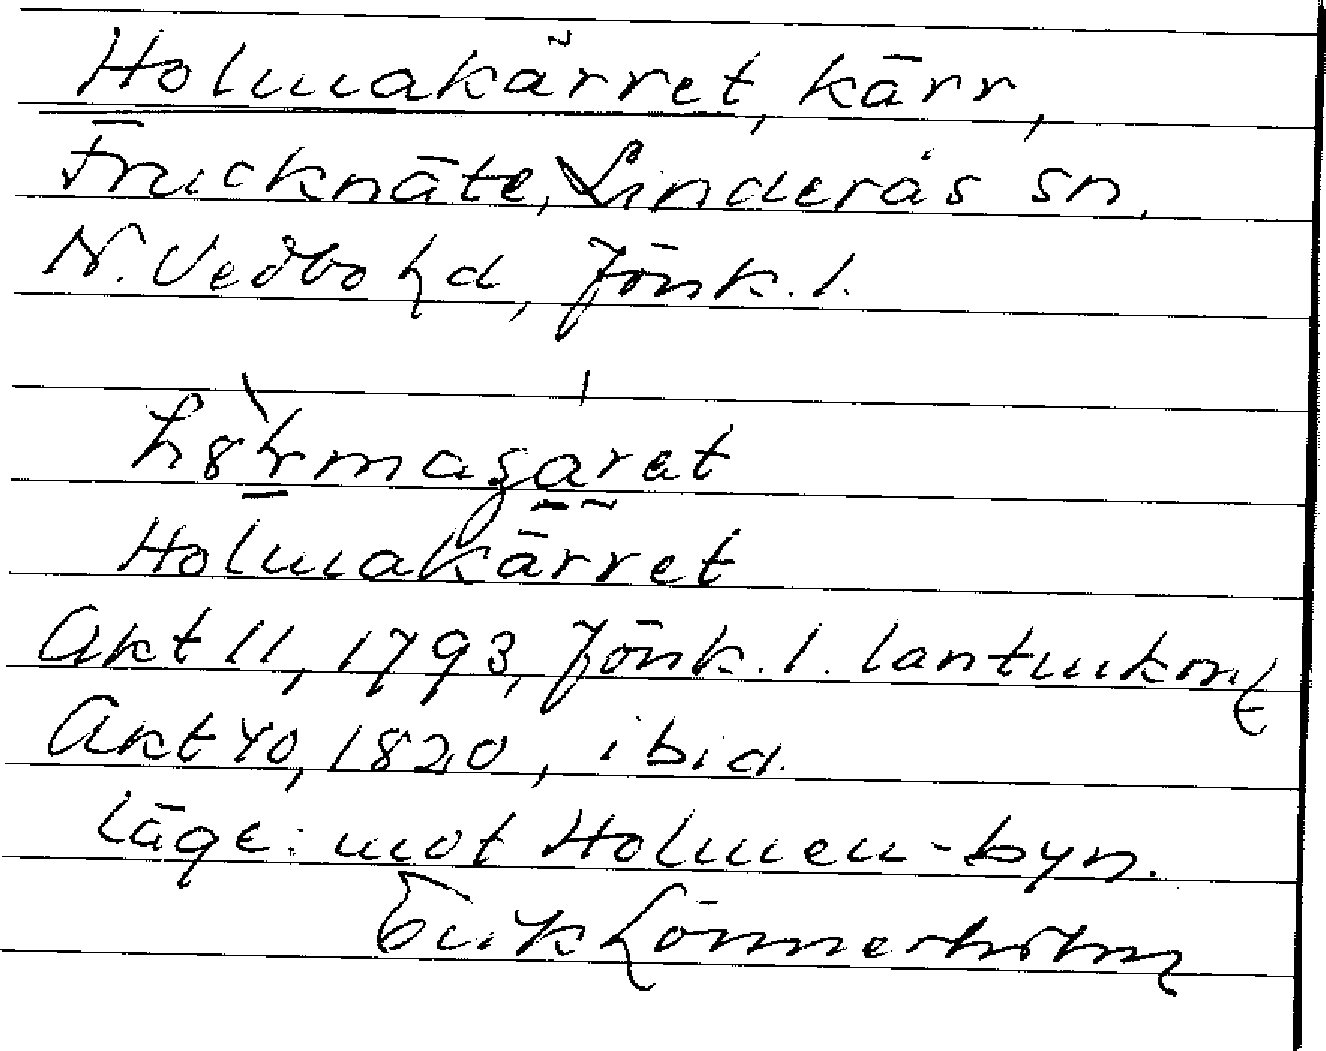 Holmakärret, kärr,
Frucknäte, Linderås sn.
N. Vedbo hd, Jönk. l.
Holmakärret
Akt 11, 1793, Jönk. l. lantmkont
Akt 40, 1820, ibid.
Läge: mot Holmen-byn.
Erik Lönnerholm